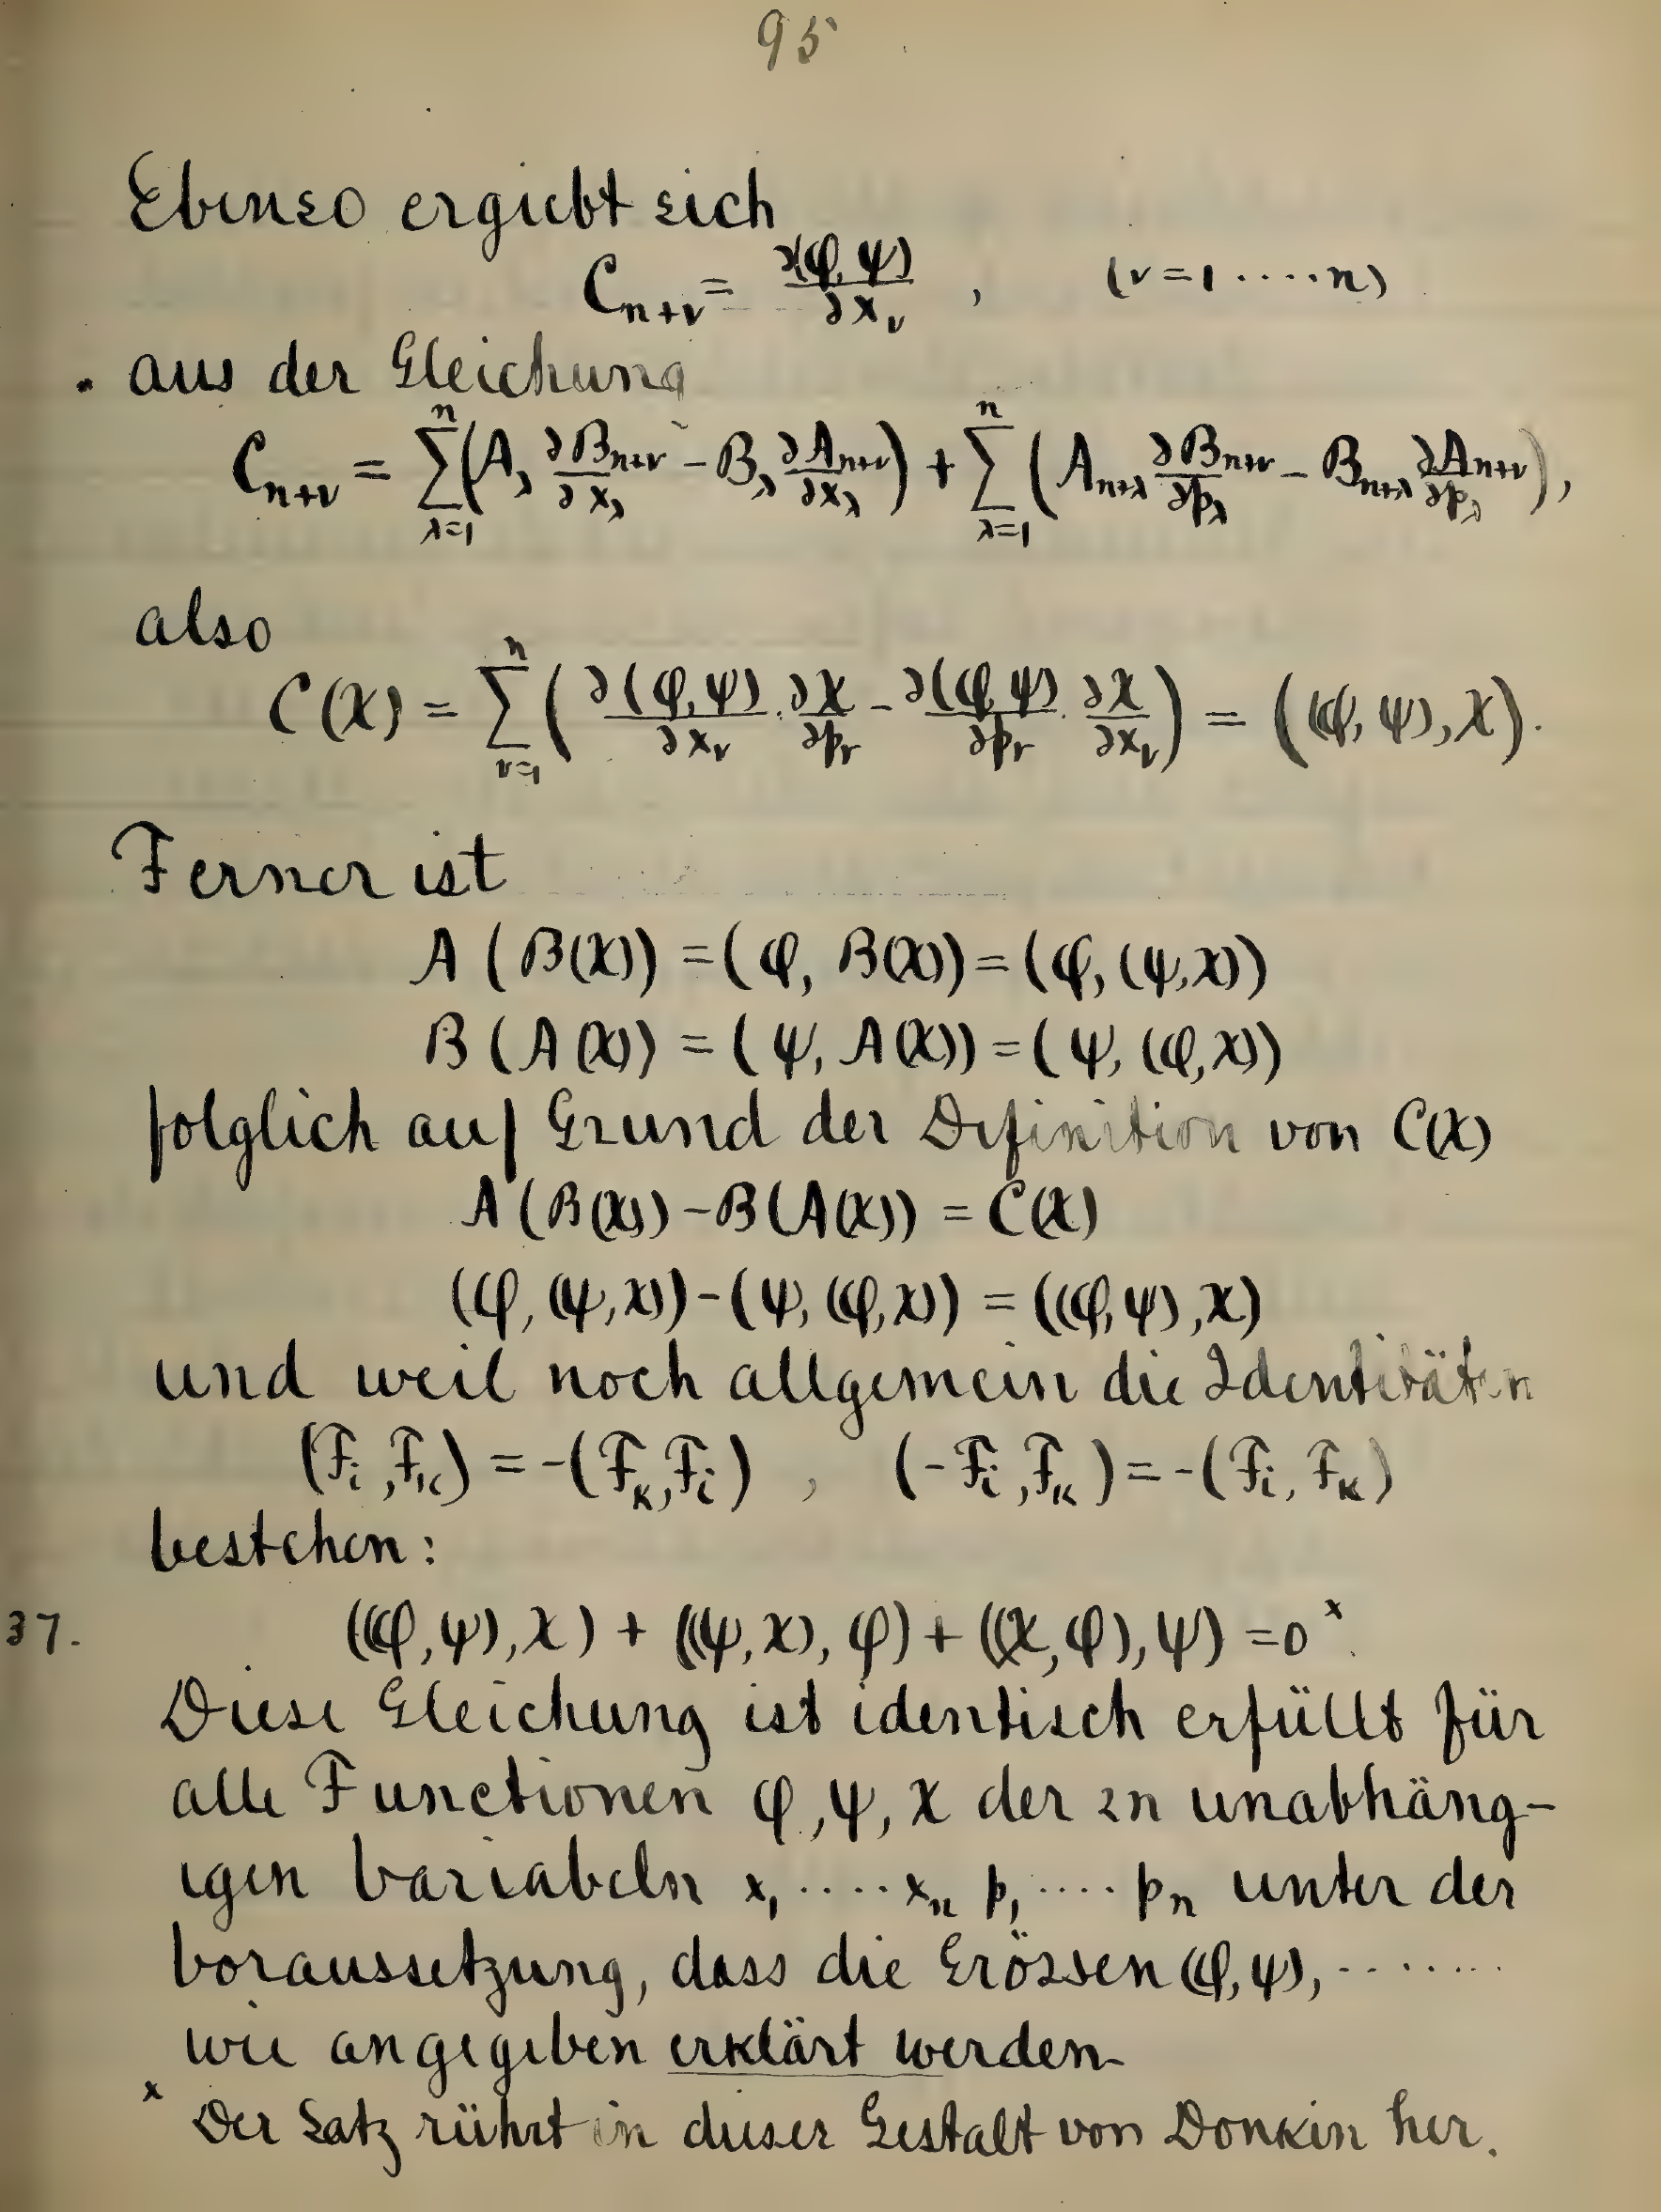 95
Ebenso ergiebt sich
C_{n+ν} = ∂(φ, ψ)/∂x_ν , (ν = 1 ····· n)
aus der Gleichung
C_{n+ν} = ∑_{λ=1}^{n} (A_λ ∂B_{n+ν}/∂x_λ − B_λ ∂A_{n+ν}/∂x_λ) + ∑_{λ=1}^{n} (A_{n+λ} ∂B_{n+ν}/∂p_λ − B_{n+λ} ∂A_{n+ν}/∂p_λ),
also
C(χ) = ∑_{ν=1}^{n} (∂(φ, ψ)/∂x_ν · ∂χ/∂p_ν − ∂(φ, ψ)/∂p_ν · ∂χ/∂x_ν) = ((φ, ψ), χ).
Ferner ist
A (B(χ)) = (φ, B(χ)) = (φ, (ψ, χ))
B (A(χ)) = (ψ, A(χ)) = (ψ, (φ, χ))
folglich auf Grund der Definition von C(χ)
A (B(χ)) − B(A(χ)) = C(χ)
(φ, (ψ, χ)) − (ψ, (φ, χ)) = ((φ, ψ), χ)
und weil noch allgemein die Identitäten
(F_i, F_k) = −(F_k, F_i) , (−F_i, F_k) = −(F_i, F_k)
bestehen:
37. ((φ, ψ), χ) + ((ψ, χ), φ) + ((χ, φ), ψ) = 0 ˣ.
Diese Gleichung ist identisch erfüllt für
alle Functionen φ, ψ, χ der 2n unabhäng-
igen Variabeln x₁ ····· x_n p₁ ····· p_n unter der
Voraussetzung, dass die Grössen (φ, ψ), ········
wie angegeben erklärt werden.
ˣ Der Satz rührt in dieser Gestalt von Donkin her.